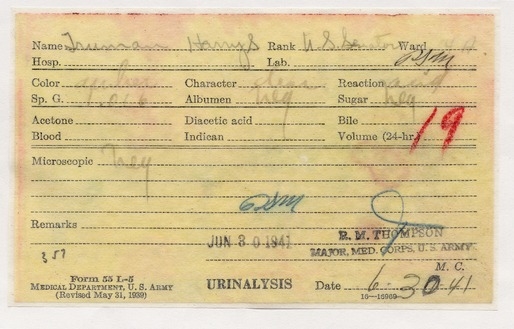 Name Truman Harry S Rank U.S. Senator Ward
Hosp. Lab.
Color amber Character clear Reaction acid
Sp. G. 1.016 Albumen neg Sugar neg
Acetone Diacetic acid Bile
Blood Indican Volume (24-hr.)
19
Microscopic neg
Remarks
JUN 30 1941
R. M. THOMPSON
MAJOR, MED. CORPS, U. S. ARMY
357
M. C.
Form 55 L-5
MEDICAL DEPARTMENT, U. S. ARMY
(Revised May 31, 1939)
URINALYSIS
Date 6-30-41
16-16969